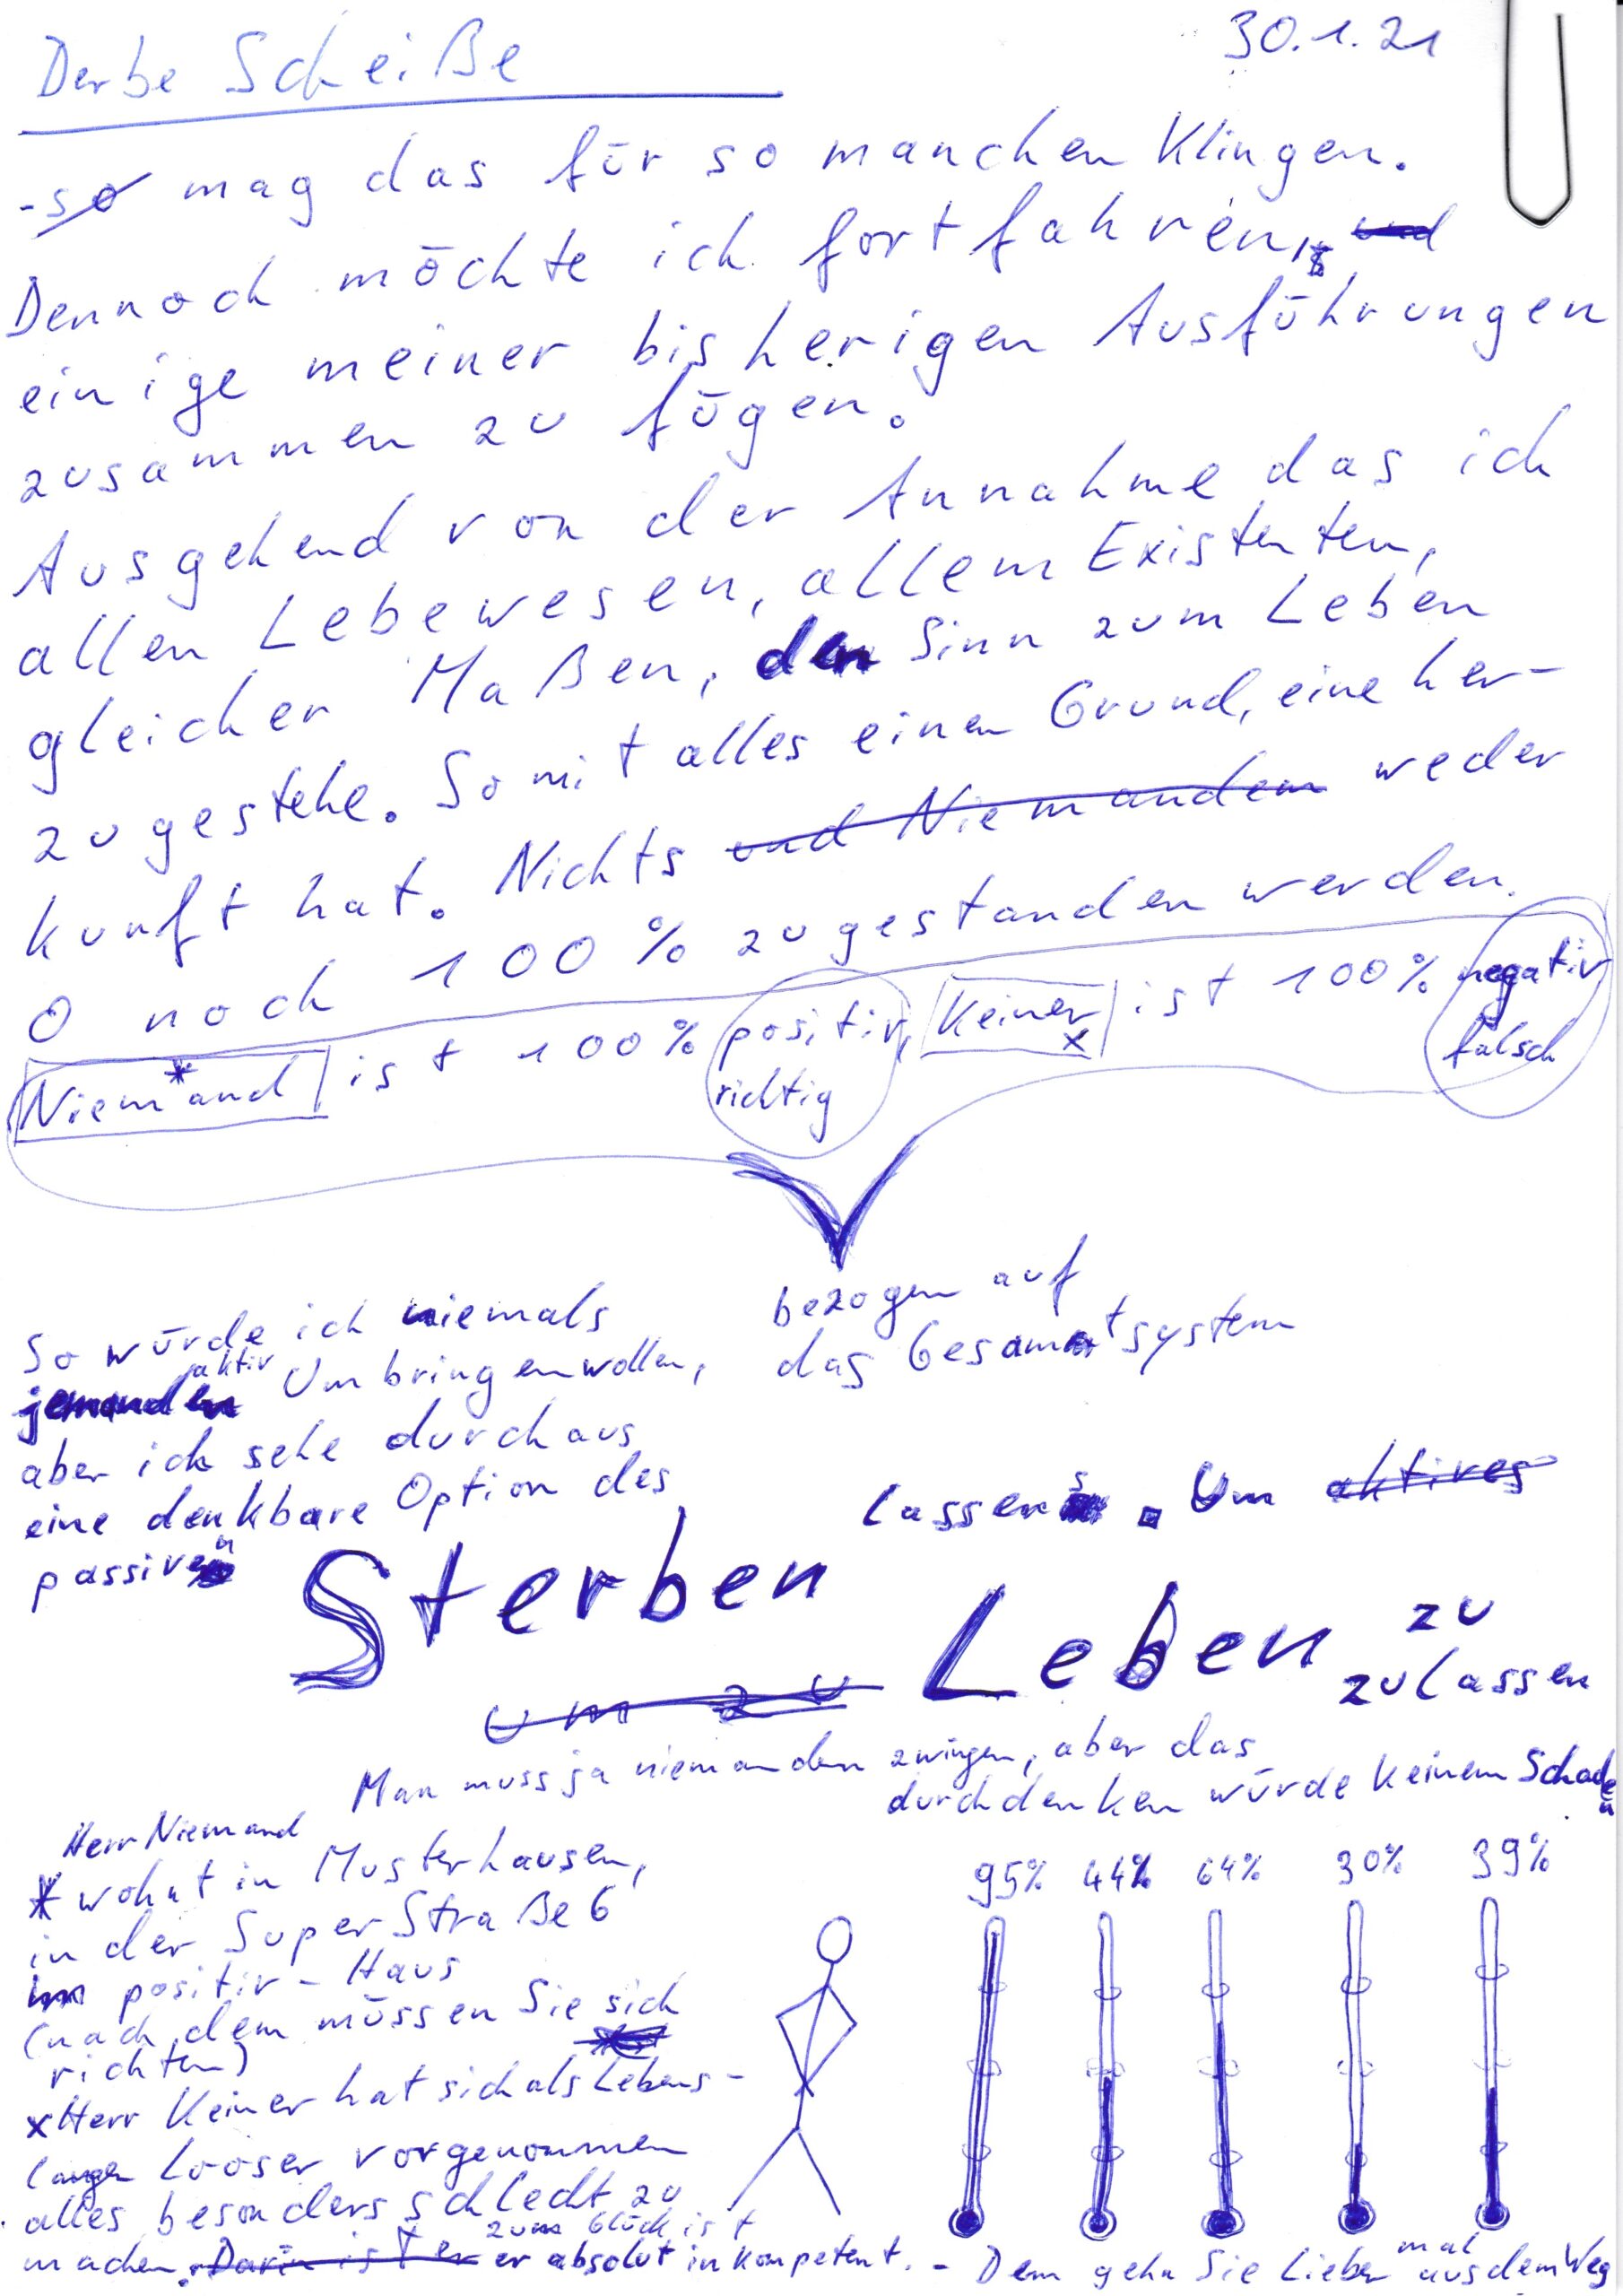 30.1.21
Derbe Scheiße
-so mag das für so manchen Klingen.
Dennoch möchte ich fortfahren, und
einige meiner bisherigen Ausführungen
zusammen zu fügen.
Ausgehend von der Annahme das ich
allen Lebewesen, allem Existenten,
gleicher Maßen, den Sinn zum Leben
zugestehe. Somit alles einen Grund, eine her-
kunft hat. Nichts und Niemandem weder
0 noch 100% zugestanden werden.
Niemand* ist 100% positiv, Keiner x ist 100% negativ
richtig falsch
So würde ich niemals
jemanden aktiv Umbringen wollen,
bezogen auf
das Gesamtsystem
aber ich sehe durchaus
eine denkbare Option des
passiven
Sterben
lassens. Um aktives
um zu
Leben zu
zulassen
Man muss ja niemanden zwingen, aber das
durchdenken würde keinem Schaden
Herr Niemand
* wohnt in Musterhausen,
in der Super Straße 6
im positiv-Haus
(nach dem müssen Sie sich
richten)
x Herr Keiner hat sich als Lebens-
langer Looser vorgenommen
alles besonders schlecht zu
machen. Darin ist er zum Glück ist er absolut inkompetent. - Dem gehn Sie Lieber mal aus dem Weg
95% 44% 64% 30% 39%